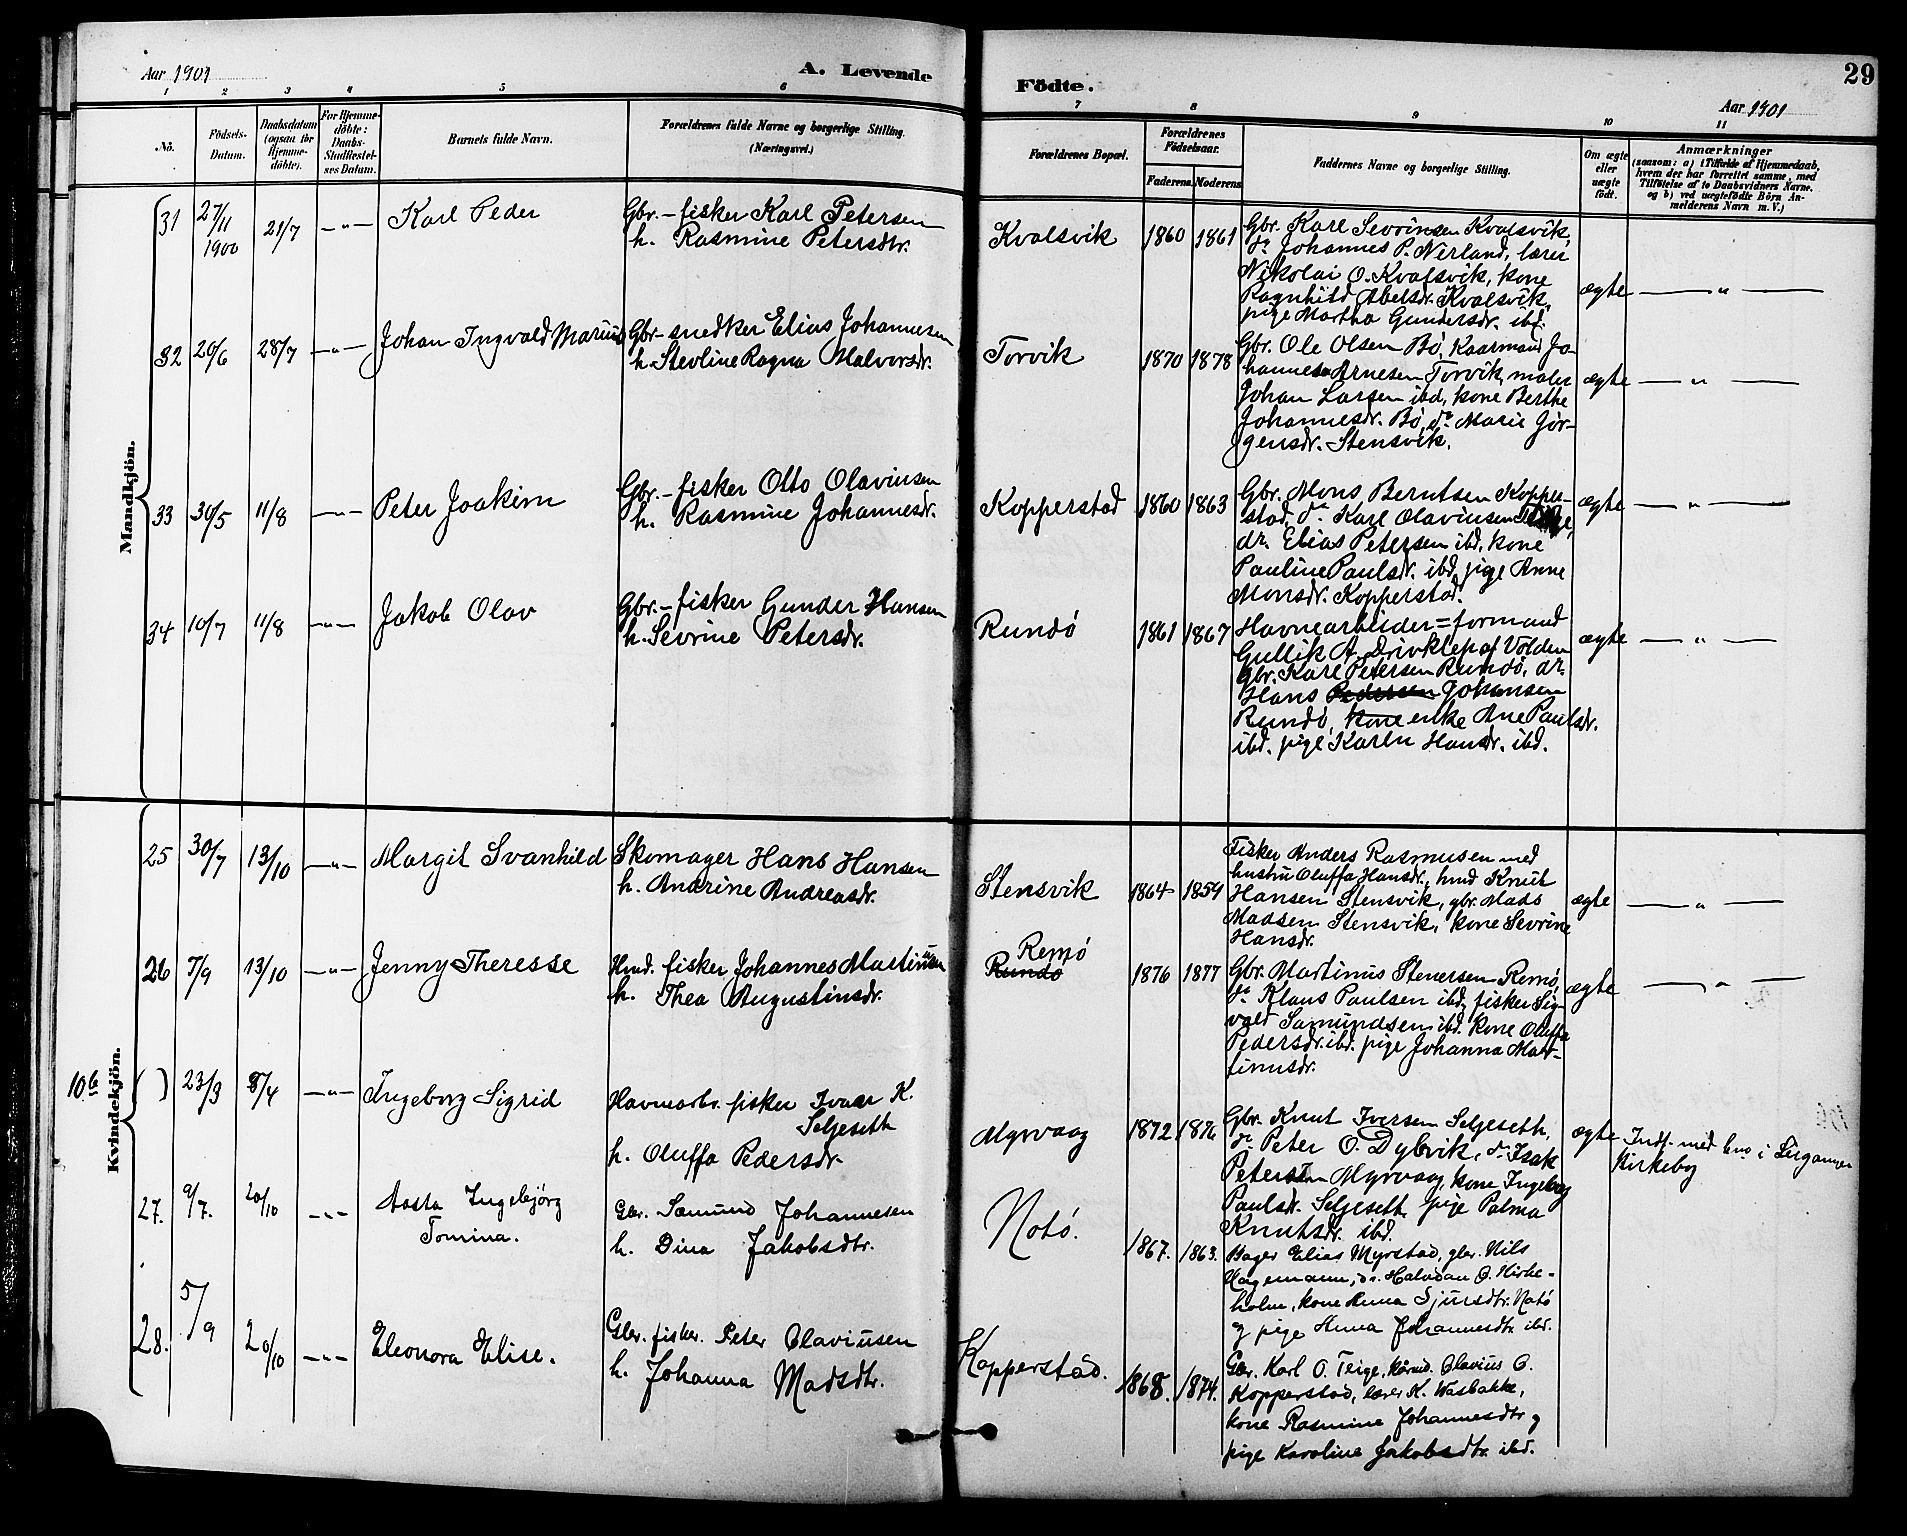 Aar 1901
A. Levende
Födte.
29
Aar 1901
1 2 3 4 5 6 7 8 9 10 11
No.
Födsels-
Datum.
Daabsdatum
(ogsaa for
Hjemme-
döbte).
For Hjemme-
döbte:
Daabs-
Stadfæstel-
ses Datum.
Barnets fulde Navn.
Forældrenes fulde Navne og borgerlige Stilling.
(Næringsvei.)
Forældrenes Bopæl.
Forældrenes
Födselsaar.
Faderens Moderens
Faddernes Navne og borgerlige Stilling.
Om ægte
eller
uægte
födt.
Anmærkninger
(saasom: a) i Tilfælde af Hjemmedaab,
hvem der har forrettet samme, med
Tilföielse af to Daabsvidners Navne.
og b) ved uægtefödte Börn An-
melderens Navn m. V.)
Mandkjön.
31 27/11 1900 21/7 -"- Karl Peder
Gbr.-fisker Karl Petersen
h. Rasmine Petersdtr.
Kvalsvik 1860 1861
Gbr. Karl Sevrinsen Kvalsvik,
do Johannes P. Nerland, lærer
Nikolai O. Kvalsvik, kone
Ragnhild Abelsdr. Kvalsvik,
pige Martha Gundersdr. ibf.
ægte — " —
32 20/6 28/7 -"- Johan Ingvald Marius
Gbr-snedker Elias Johannesen
h. Stevline Ragna Malvorsdr.
Torvik 1870 1878
Gbr. Ole Olsen Bö, Kaarmand Jo-
hannes Arnesen Torvik, maler
Johan Larsen ibd, kone Berthe
Johannesdr. Bö, do Marie Jör-
gensdr. Stensvik.
ægte — " —
33 30/5 11/8 -"- Peter Joakim
Gbr.-fisker Otto Olavinsen
h. Rasmine Johannesdr.
Kopperstad 1860 1863
Gbr. Mons Berntsen Kopper-
stad, do Karl Olavinsen
dr. Elias Petersen ibd, kone
Pauline Paulsdr. ibd, pige Anne
Monsdr. Kopperstad.
ægte — " —
34 10/7 11/8 -"- Jakob Olav
Gbr.-fisker Gunder Hansen
h. Sevrine Petersdr.
Rundö 1861 1867
Havnearbeider=formand
Gullik A. Drivklep af Volden
Gbr. Karl Petersen Rundö, dr.
Hans Pedersen Johansen
Rundö, kone enke Ane Paulsdr.
ibd. pige Karen Hansdr. ibd.
ægte — " —
Kvindekjön.
25 30/7 13/10 -"- Margit Svanhild
Skomager Hans Hansen
h. Andrine Andreasdr.
Stensvik 1864 1859
Fisker Anders Rasmusen med
hustru Oluffa Hansdr., hmd Knut
Hansen Stensvik, gbr. Mads
Madsen Stensvik, kone Sevrine
Hansdr.
ægte — " —
26 7/9 13/10 -"- Jenny Theresse
Hmd. fisker Johannes Martinusen
h. Thea Augustinsdr.
Remö
Rundö
1876 1877
Gbr. Martinus Stenersen Remö,
do Klaus Paulsen ibd, fisker Sig-
vald Samundsen ibd. kone Oluffa
Pedersdr. ibd. pige Johanna Mar-
tinusdr.
ægte — " —
10.b ( ) 23/3 8/4 -"- Ingeborg Sigrid
Havnearb. fisker Ivar K.
Seljeseth
h. Oluffa Pedersdr.
Myrvaag 1872 1876
Gbr. Knut Iversen Seljeseth,
do Peter O. Dybvik, do Isak
Petersen Myrvaag, kone Ingeborg
Paulsdr. Seljeseth pige Palma
Knutsdr. ibd.
ægte
Indf. med
Kirkebog
27. 9/7. 20/10 -"- Aasta Ingebjörg
Tomina.
Gbr. Sæmund Johannesen
h. Dina Jakobsdtr.
Notö. 1867. 1863.
Bager Elias Myrstad, gbr. Nils
Hagemann, do. Halvdan O. Kirke-
holm, kone Anna Sjursdtr. Notö
og pige Anna Johannesdtr. ibd.
28. 5/9 20/10 -"- Eleonora Elise.
Gbr. fisker. Peter Olaviusen
h. Johanna Madsdtr.
Kopperstad. 1868. 1874.
Gbr. Karl O. Teige, kårmd. Olavius O.
Kopperstad, lærer K. Wasbakke,
kone Rasmine Johannesdtr og
pige Karoline Jakobsdtr. ibd.